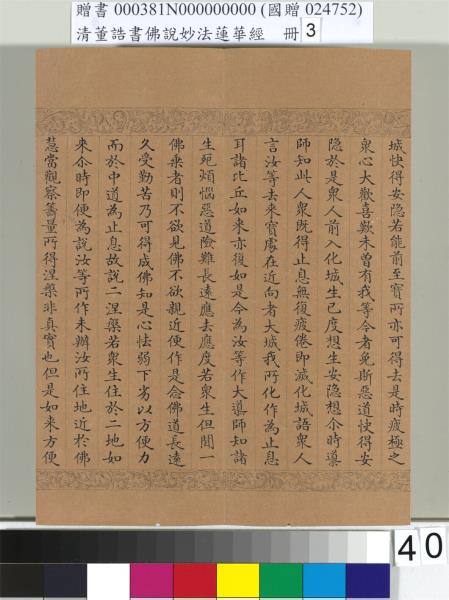 贈書 000381N000000000 (國贈 024752)
清董誥書佛說妙法蓮華經 冊 3
城快得安隐若能前至寶所亦可得去是時疲極之
衆心大歡喜歎未曾有我等今者免斯惡道快得安
隐於是衆人前入化城生已度想生安隐想尒時導
師知此人衆既得止息無復疲倦即滅化城語衆人
言汝等去來寶處在近向者大城我所化作為止息
耳諸比丘如來亦復如是今為汝等作大導師知諸
生死煩惱惡道險難長遠應去應度若衆生但聞一
佛乗者則不欲見佛不欲親近便作是念佛道長遠
久受勤苦乃可得成佛知是心怯弱下劣以方便力
而於中道為止息故說二涅槃若衆生住於二地如
来尒時即便為說汝等所作未辦汝所住地近於佛
慧當觀察籌量所得涅槃非真實也但是如来方便
40